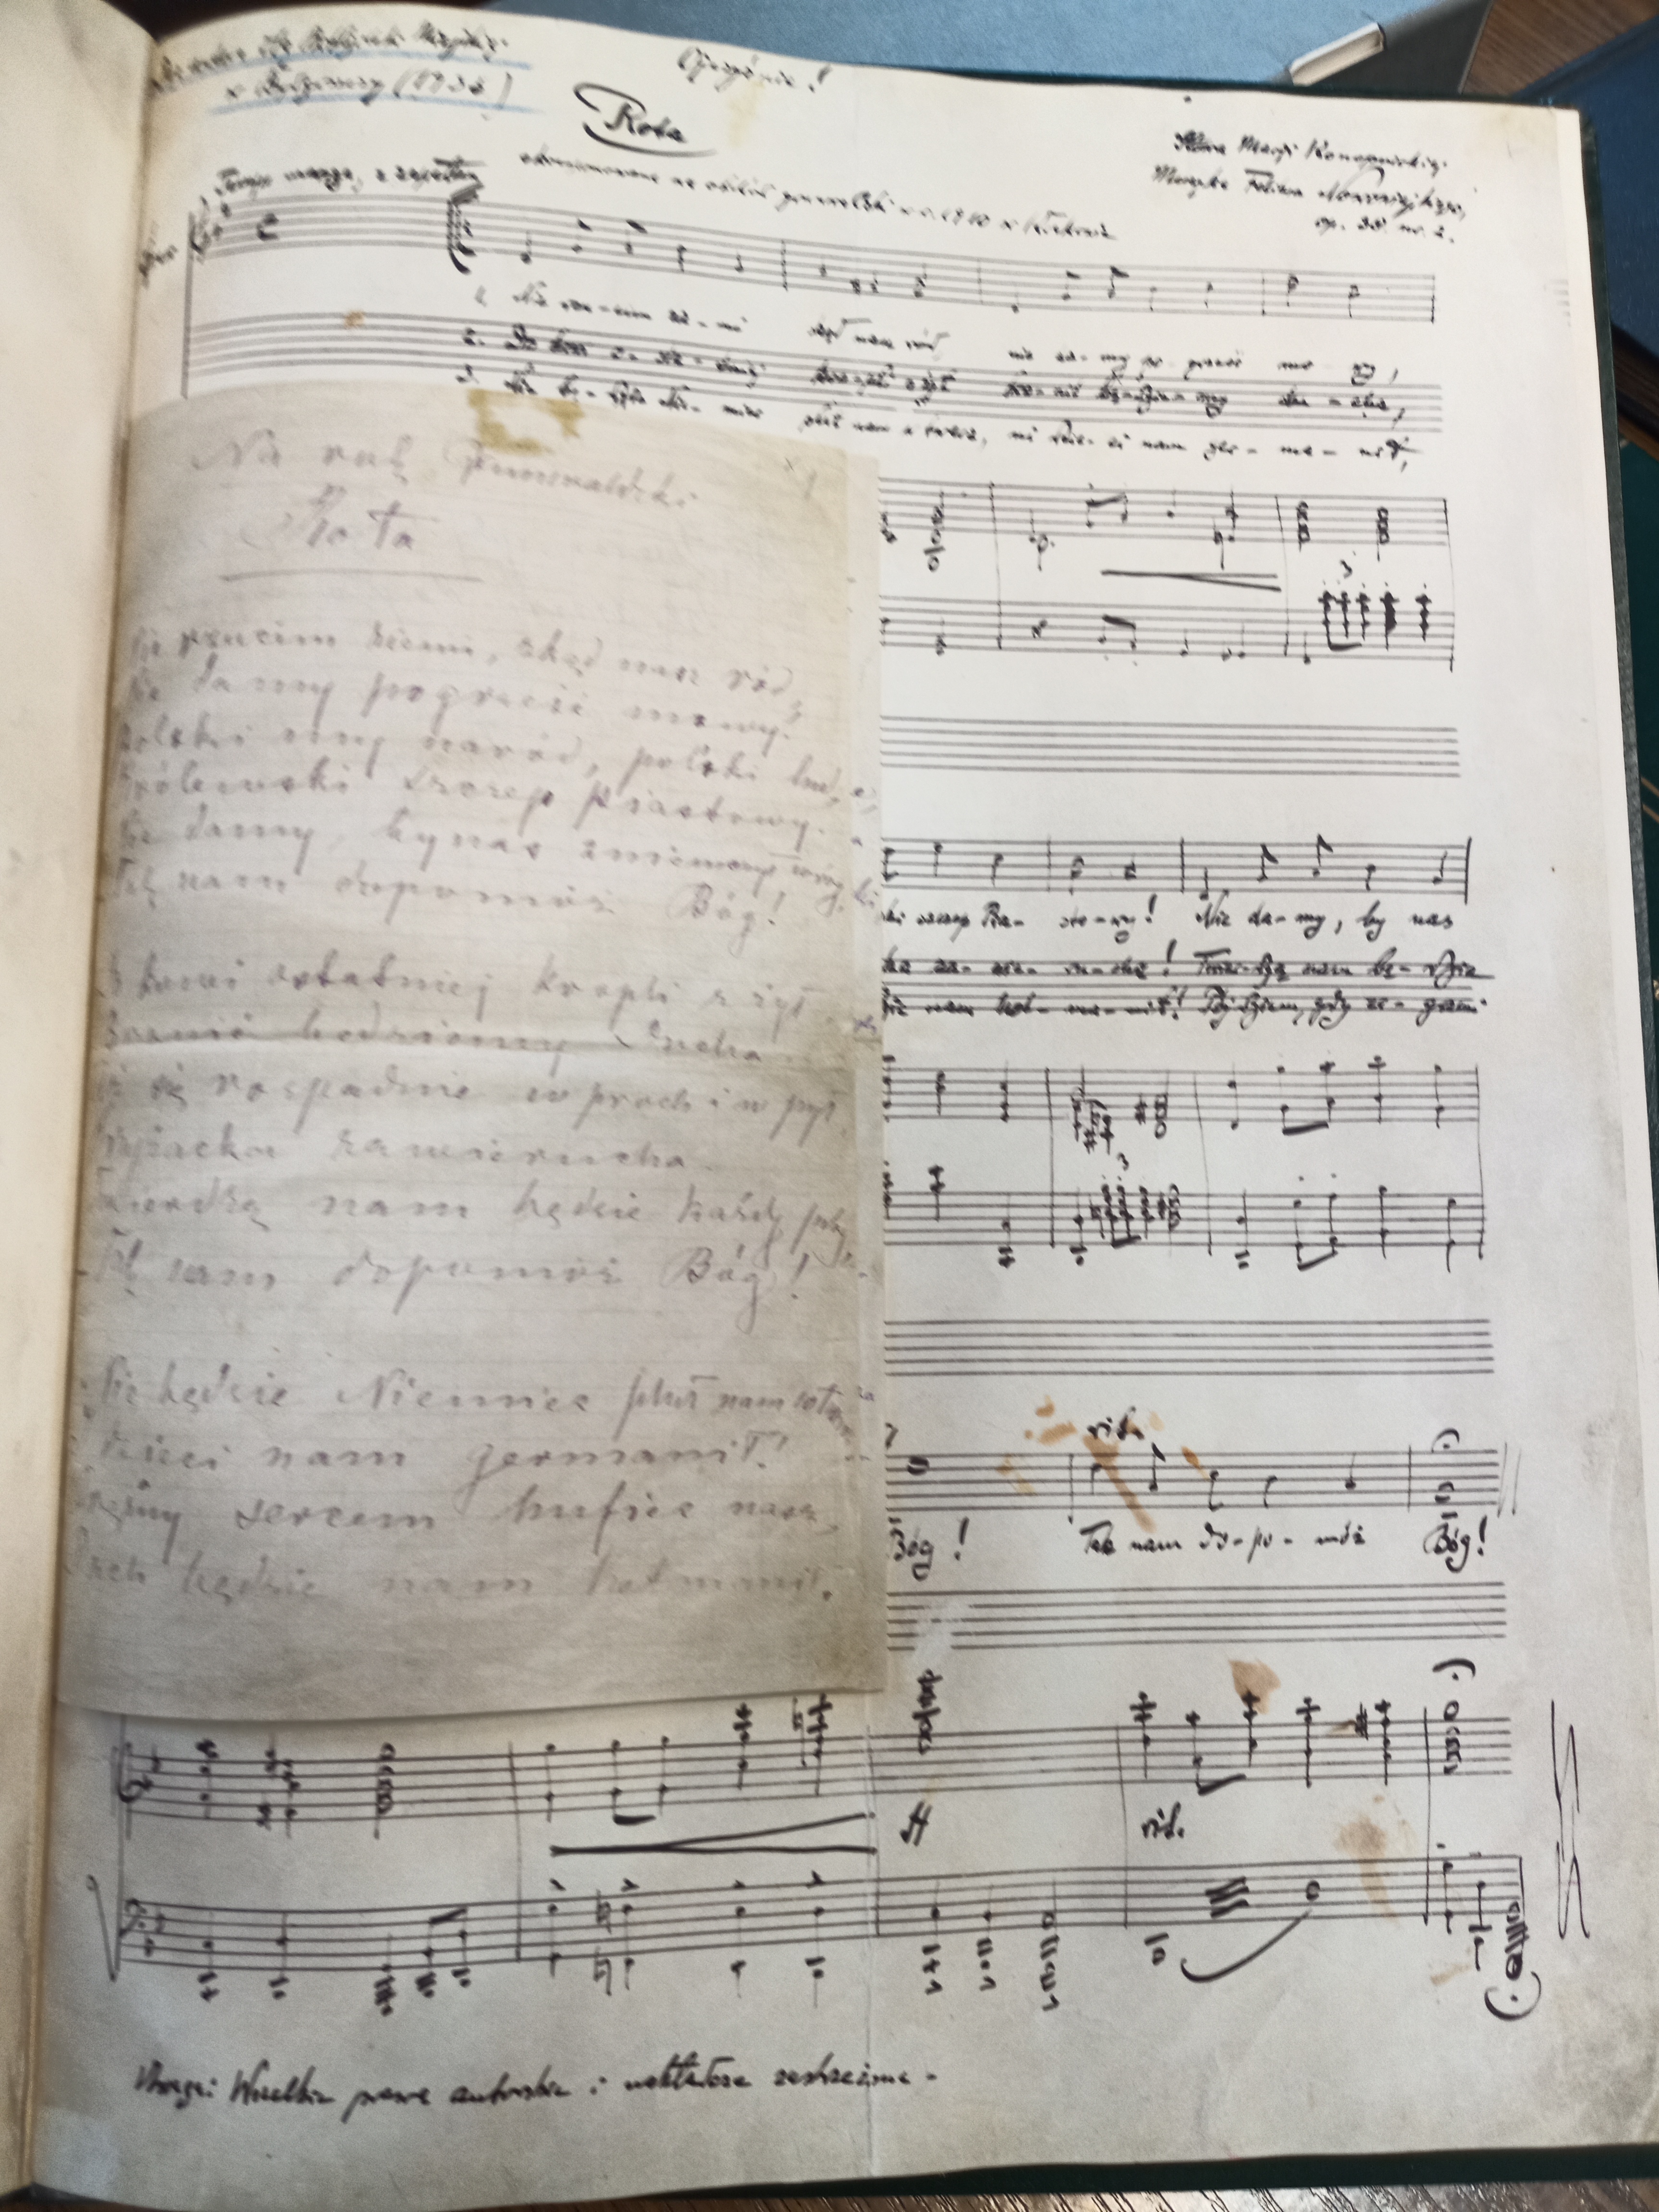 (1936)
Ojczyźnie!
Rota
Słowa Maryi Konopnickiej.
Muzyka Feliksa Nowowiejskiego,
op. 38. nr. 2.
w r. 1910 w Krakowie
1. Nie rzu-cim zie-mi skąd nasz ród nie da-my po-grześć mo-wy,
2. Do krwi o-sta-tniej kro-pli z żył bro-nić bę-dzie-my du-cha,
3. Nie bę-dzie Nie-miec pluł nam w twarz, ni dzie-ci nam ger-ma-nił,
Na rok Grunwaldzki
Rota
Nie rzucim ziemi, skąd nasz ród,
Nie damy pogrześć mowy!
Polski my naród, polski lud,
Królewski szczep piastowy.
Nie damy, by nas zniemczył wróg
Tak nam dopomóż Bóg!
Do krwi ostatniej kropli z żył
Bronić będziemy Ducha
Aż się rozpadnie w proch i w pył
Krzyżacka zawierucha.
Twierdzą nam będzie każdy próg
Tak nam dopomóż Bóg!
Nie będzie Niemiec pluł nam w twarz
dzieci nam germanił!
sercem hufiec nasz,
Duch będzie nam hetmanił.
ski szczep Pia-sto-wy! Nie da-my, by nas
cka za-wie-ru-cha! Twier-dzą nam bę-dzie
dzie nam het-ma-nił! Pój-dziem, gdy za-grzmi
rit.
Bóg! Tak nam do-po-móż Bóg!
ff rit.
Uwaga: Wszelkie prawa autorskie i nakładcze zastrzeżone -